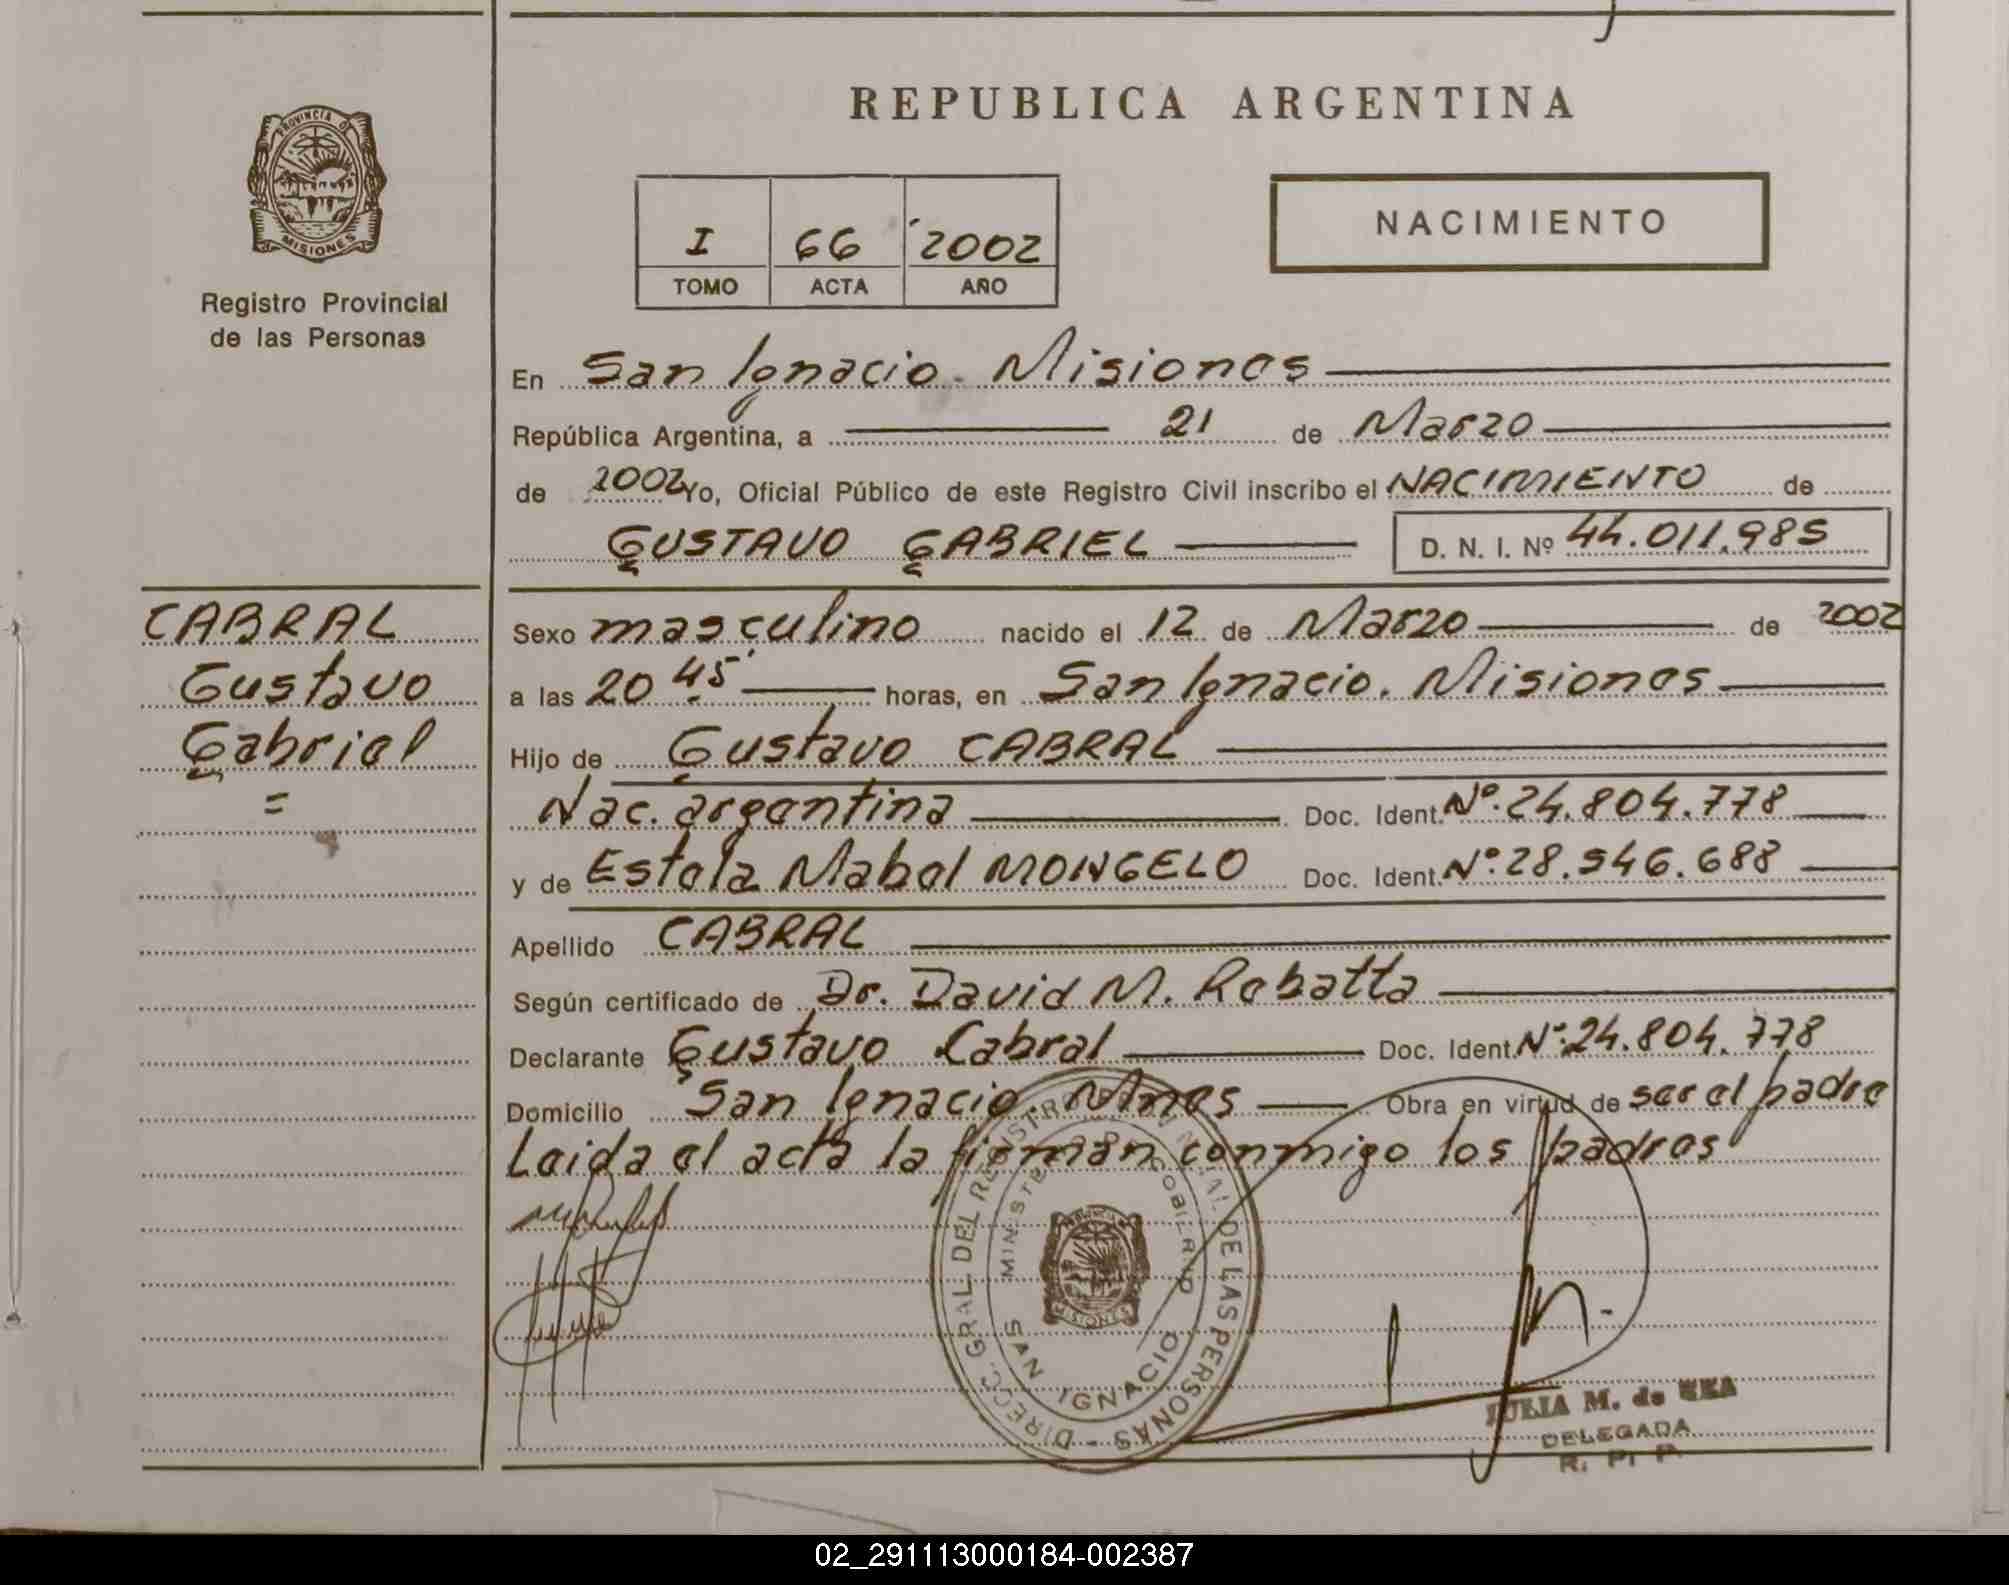 REPUBLICA ARGENTINA
PROVINCIA DE
MISIONES
Registro Provincial
de las Personas
I 66 2002
TOMO ACTA AÑO
NACIMIENTO
En San Ignacio. Misiones
República Argentina, a 21 de Marzo
de 2002 Yo, Oficial Público de este Registro Civil inscribo el NACIMIENTO de
GUSTAVO GABRIEL D. N. I. Nº 44.011.985
CABRAL
Gustavo
Gabriel
Sexo masculino nacido el 12 de Marzo de 2002
a las 20 45 horas, en San Ignacio. Misiones
Hijo de Gustavo CABRAL
Nac. argentina Doc. Ident. Nº. 24.804.778
y de Estela Mabel MONGELO Doc. Ident. Nº. 28.546.688
Apellido CABRAL
Según certificado de Dr. David M. Rebatta
Declarante Gustavo Cabral Doc. Ident. Nº. 24.804.778
Domicilio San Ignacio. Mnes Obra en virtud de ser el padre
Leida el acta la firman conmigo los padres
DIRECC. GRAL. DEL REGISTRO PROVINCIAL DE LAS PERSONAS -
MINISTERIO DE GOBIERNO
SAN IGNACIO
MISIONES
JULIA M. de
DELEGADA
R. P. P.
02_291113000184-002387